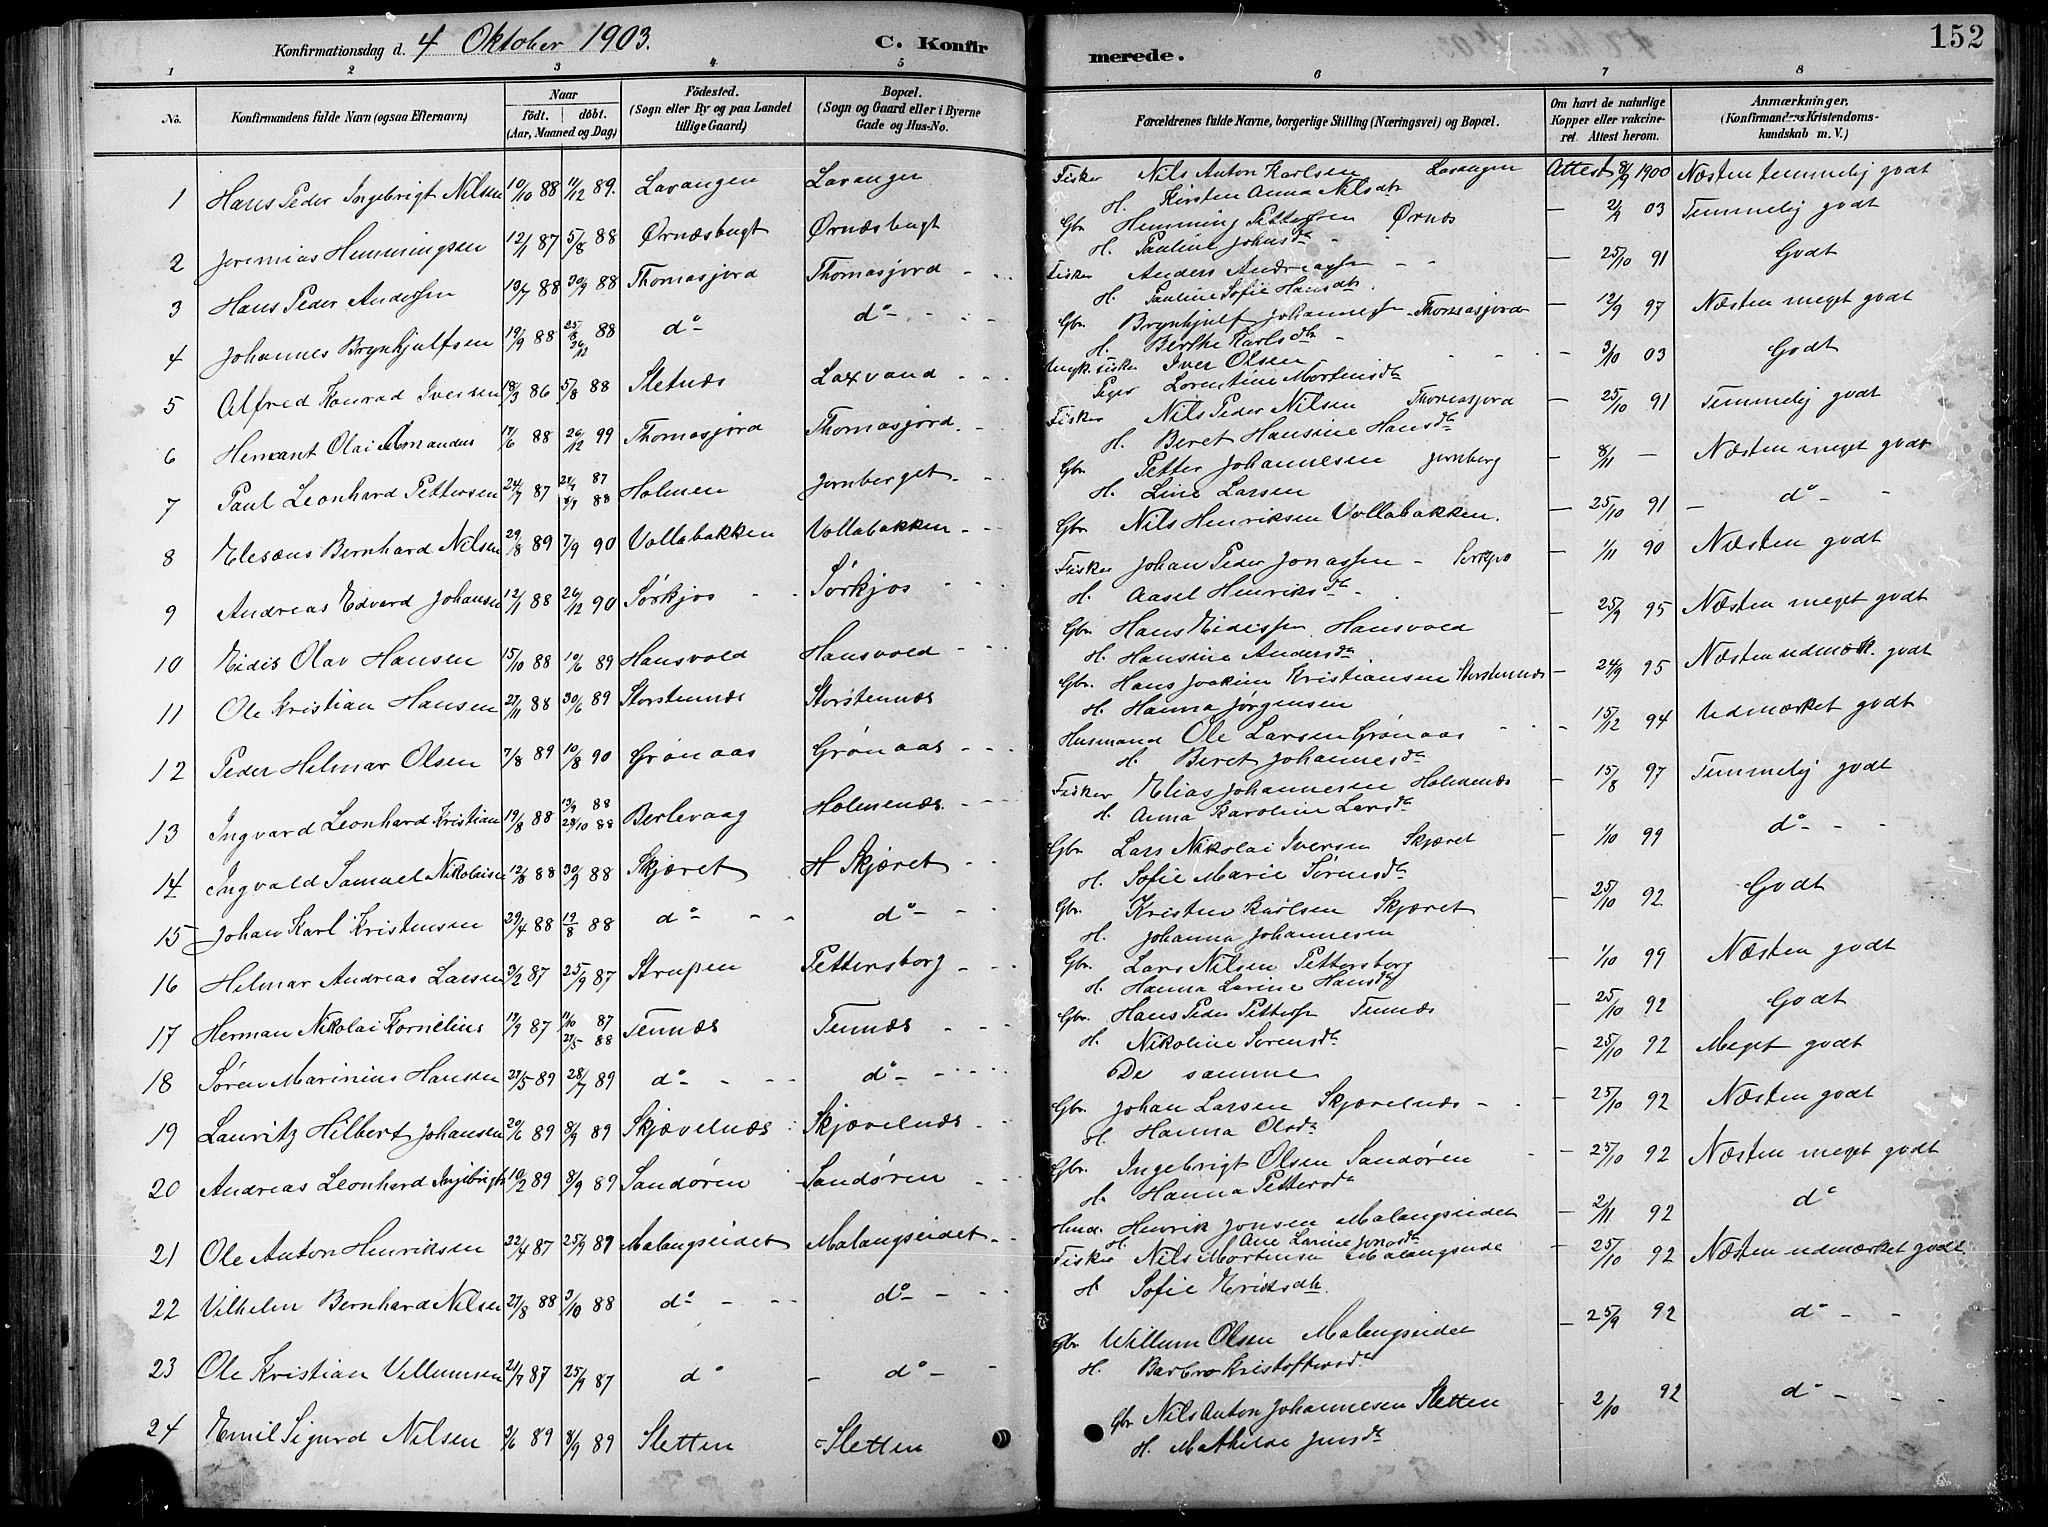 Konfirmationsdag d. 4 Oktober 1903. C. Konfir merede. 152
1 2 3 4 5 6 7 8
No. Konfirmandens fulde Navn (ogsaa Efternavn) Naar født. døbt. (Aar, Maaned og Dag) Fødested. (Sogn eller By og paa Landet tillige Gaard) Bopæl. (Sogn og Gaard eller i Byerne Gade og Hus-No. Forældrenes fulde Navne, borgerlige Stilling (Næringsvei) og Bopæl. Om havt de naturlige Kopper eller vakcineret. Attest herom. Anmærkninger. (Konfirmandens Kristendomskundskab m. V.)
1 Hans Peder Ingebrigt Nilsen 10/10 88 11/12 89. Lavangen Lavangen Fisker Nils Anton Karlsen Lavangen Attest 8/9 1900 Næsten temmelig godt
H. Kirsten Anna Nilsdtr
2 Jeremias Hemmingsen 12/1 87 5/8 88 Ørnæsbugt Ørnæsbugt Gbr. Hemming Pettersen Ørnæs — 2/9 03 Temmelig godt
H. Pauline Johnsdr
3 Hans Peder Anderssen 13/7 88 30/9 88 Thomasjord Thomasjord Fisker Anders Andreassen — 25/10 91 Godt
H. Pauline Sofie Hansdtr.
4 Johannes Brynhjulfsen 19/9 88 25/8 26/12 88 do do Gbr. Brynhjulf Johannessen Thomasjord — 12/9 97 Næsten meget godt
H. Berthe Karlsdtr
5 Alfred Konrad Iversen 18/3 86 5/8 88 Sletnæs Laxvand Ungk. fisker Iver Olsen — 3/10 03 Godt
Pige Lorentine Mortensdtr
6 Hemant Olai Amandus 17/6 88 26/12 99 Thomasjord Thomasjord. Fisker Nils Peder Nilsen Thomasjord — 25/10 91 Temmelig godt
H. Beret Hansine Hansdr
7 Paul Leonhard Pettersen 24/7 87 87 88 Holmen Jernberget Gbr. Petter Johannesen Jernberg — 8/11 — Næsten meget godt
H. Line Larsen
8 Elesæus Bernhard Nilsen 29/8 89 7/9 90 Vollabakken Vollabakken Gbr. Nils Henriksen Vollabakken. — 25/10 91 — do
9 Andreas Edvard Johansen 12/11 88 26/12 90 Sørkjos Sørkjos Fisker Johan Peder Jonassen — 1/11 90 Næsten godt
H. Aasel Henriksdr
10 Eidis Olav Hansen 15/10 88 10/6 89 Hansvold Hansvold Gbr. Hans Eidissen Hansvold 25/9 95 Næsten meget godt
H. Hansine Andersdr
11 Ole Kristian Hansen 27/11 88 30/6 89 Storstennæs Storstennæs Gbr. Hans Joakim Kristiansen Storstennæs — 24/9 95 Næsten udmærk. godt
H. Hanna Jørgensen
12 Peder Helmar Olsen 7/8 89 10/8 90 Grønaas Grønaas Husmand Ole Larsen Grønaas 15/12 94 Udmærket godt
H. Beret Johannesdr
13 Ingvard Leonhard Kristian 19/8 88 13/9 88 28/10 88 Berlevaag Holmenæs Fisker Elias Johannesen Holmenæs — 15/8 97 Temmelig godt
H. Anna Karoline Larsdr
14 Ingvald Samuel Nikolaisen 12/8 88 30/9 88 Skjæret Skjæret Gbr. Lars Nikolai Iversen Skjæret 1/10 99 do
H. Sofie Marie Sørensdr
15 Johan Karl Kristensen 29/4 88 19/8 88 do do Gbr. Kristen Karlsen Skjæret 25/10 92 Godt
H. Johanna Johannesen
16 Helmar Andreas Larsen 3/2 87 25/9 87 Strupen Pettersborg Gbr. Lars Nilsen Pettersborg — 1/10 99 Næsten godt
H. Hanna Larine Hansdtr
17 Herman Nikolai Kornelius 19/9 87 11/10 87 27/5 88 Tennæs Tennæs Gbr. Hans Peder Pettersen Tennæs 25/10 92 Godt
H. Nikoline Sørensdr
18 Søren Marinius Hansen 27/5 89 28/7 89 do do De samme — 25/10 92 Meget godt
19 Lauritz Hilbert Johansen 20/6 89 8/9 89 Skjævelnæs Skjævelnæs Gbr. Johan Larsen Skjævelnæs — 25/10 92 Næsten godt
H. Hanna Olsdr
20 Andreas Leonhard Ingebrigts 10/2 89 8/9 89 Sandøren Sandøren Gbr. Ingebrigt Olsen Sandøren — 25/10 92 Næsten meget godt
H. Hanna Pettersdr
21 Ole Anton Henriksen 22/4 87 25/9 89 Malangseidet Malangseidet Hmd. Henrik Jonsen Malangseidet — 2/11 92 do
H. Ane Larine Jonsdr
22 Vilhelm Bernhard Nilsen 27/8 88 3/10 88 do do Fisker Nils Mortensen Malangseide — 25/10 92 Næsten udmærket godt.
H. Sofie Eriksdtr.
23 Ole Kristian Villumsen 21/7 87 25/9 87 do do Gbr Willum Olsen Malangseidet — 25/9 92 do
H. Barbro Kristoffersdr
24 Emil Sigurd Nilsen 3/6 89 8/9 89 Sletten Sletten Gbr Nils Anton Johannesen Sletten — 2/10 92 do
H. Mathilde Jensdr